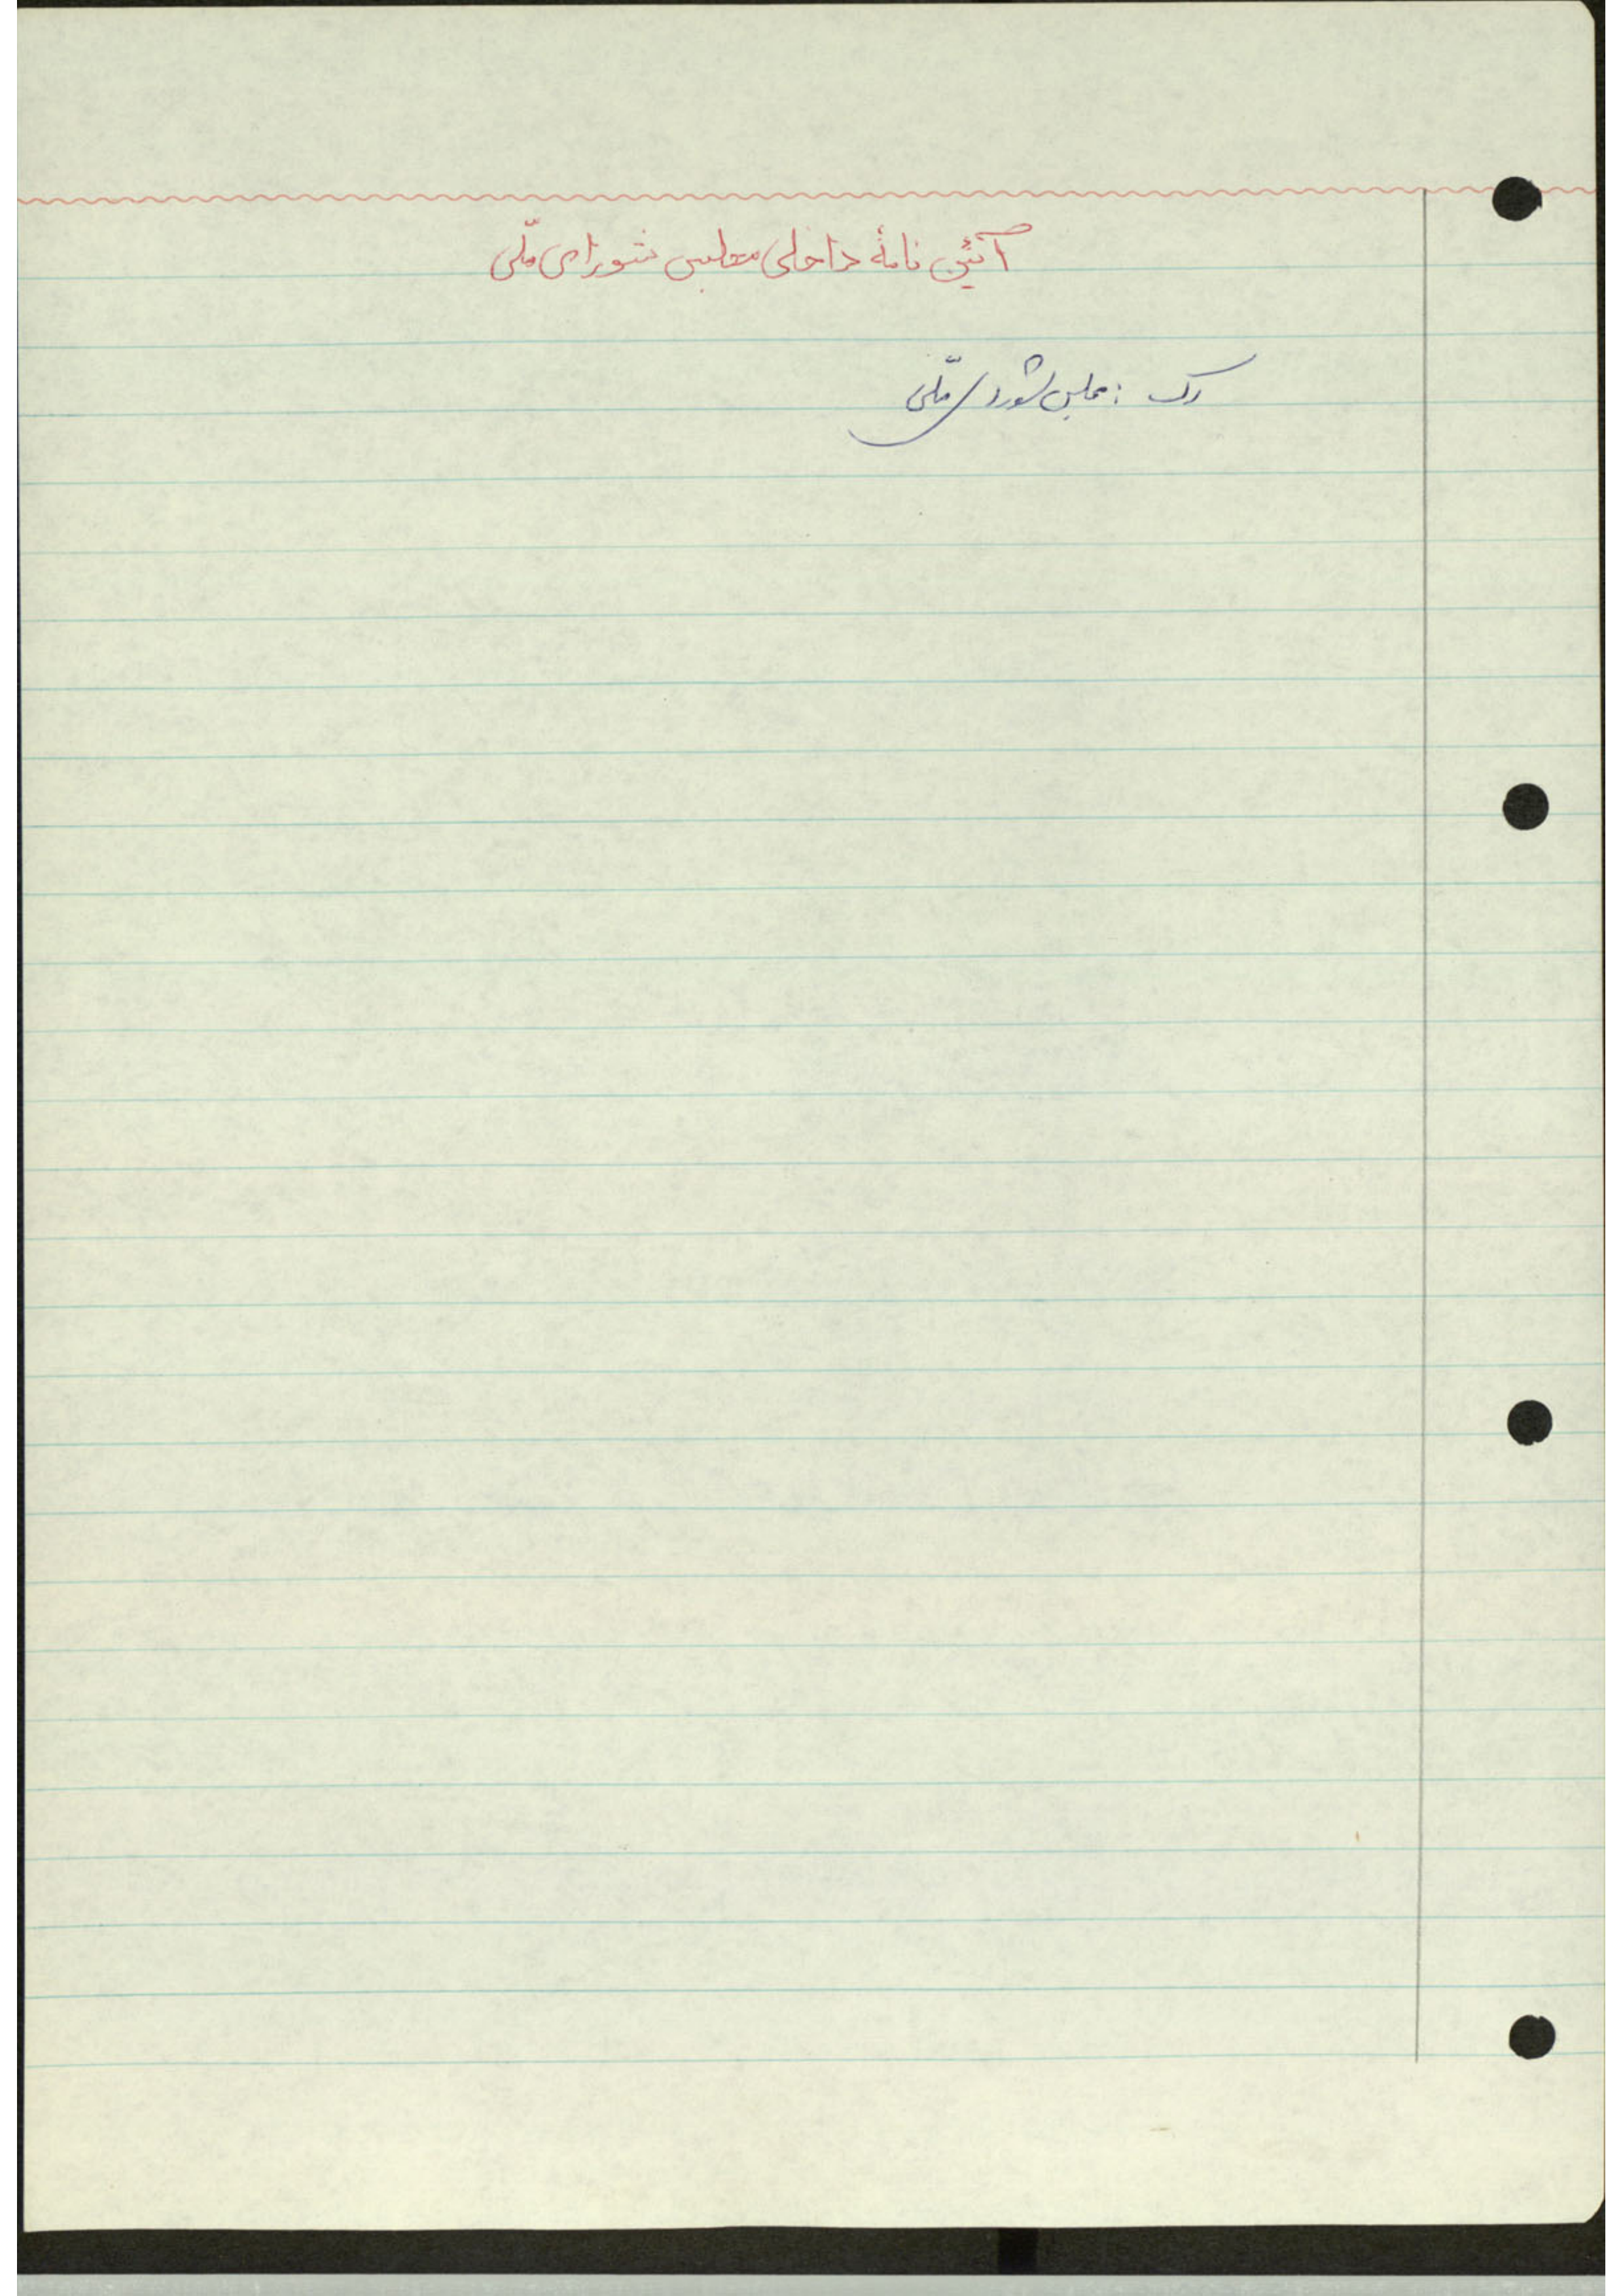 آئین نامهٔ داخلی مجلس شورای ملّی
رک : مجلس شورای ملّی